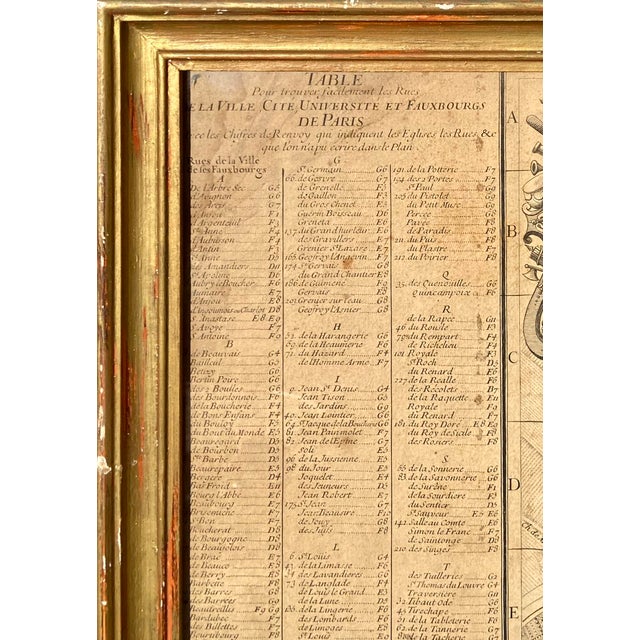 TABLE
Pour trouver facilement les Rues
DE LA VILLE CITÉ, UNIVERSITÉ ET FAUXBOURGS
DE PARIS
avec les Chifres de Renvoy qui indiquent les Eglises les Rues, &c
que l'on n'a pu ecrire dans le Plan
Rues de la Ville
de ses Fauxbourgs
A
De l'Arbre Sec G5
d'Avignon G6
des Arcis G7
d'Anjou E1
d'Argenteuil F3
Ste Anne F4
d'Aubusson F4
d'Antin F3
Ste Anne D5
des Amandiers D11
St Apoline D6
Aubry le Boucher F6
Aumaire E7
d'Anjou E8
St Anastase E8 E9
Ste Avoye F7
St Antoine F9
B
de Beauvais G4
Bailleul G5
Betizy G6
Bertin Poiré G6
des 2 Boules G6
des Bourdonnois F6
de la Boucherie F4
des Bons Enfans F4
du Bouloy F5
du Bout du Monde E5
Beauregard D5
de Bourbon D5
Ste Barbe D5
Beaurepaire E5
Bergere D4
Bas Froid E11
Bourg l'Abbé E6
Beaubourg E7
Brisemiche F7
St Bon F7
Boucherat D8
de Bourgogne D8
de Beaujolois D8
de Brac E7
de Beauce E8
de Berry E8
Barbette F8
des Barres G8
des Barrés G9
Beautreillis F9 G9
Bardubec F7
des Billettes F7
Beuribourg F8
G
St Germain G6
66 de Gesvre G7
de Grenelle F5
de Gaillon F3
du Gros Chenet E5
Guerin Boisseau D6
Greneta E6
137 du Grand hurleur E6
des Gravillers E7
Grenier St Lazare E7
165 Geofroy l'Angevin F7
174 St Gervais G8
du Grand Chantier E8
186 de Guimené F9
Gervais E8
201 Grenier sur l'eau G8
Geofroy l'Asnier G8
H
52 de la Harangerie G6
59 de la Heaumerie F6
71 du Hazard F4
de l'Homme Armé F7
I
9 Jean St Denis G4
Jean Tison G5
des Jardins G9
40 Jean Lointier G6
64 St Jacque de la Boucherie G6
81 Jean Painmolet F7
82 Jean de l'Epine G7
Soli E5
96 de la Jussienne E5
98 du Jour E5
Joquelet E4
des Jeuneurs D5
Jean Robert E7
175 St Jean G7
Jean Beausire F10
de Jouy G8
des Juifs F8
L
6 St Louis G4
43 de la Limasse F6
54 des Lavandieres G6
73 de Langlade F4
de Louis le Grand E3
de la Lune D5
136 de la Lingerie F6
des Lombards F6
de Limoges E8
St Louis E9
191 de la Potterie F7
194 des 2 Portes F7
St Paul G9
105 du Pistolet G9
du Petit Musc G9
Percée G8
Pavée F8
de Paradis F8
211 du Puis F8
du Plastre F7
212 du Poirier F8
Q
35 des Quenouilles G6
Quincampoix F6
R
de la Rapée G11
46 du Roule F3
70 du Rempart F4
de Richelieu F4
101 Royale F3
St Roch D5
du Renard E6
127 de la Realle F6
des Récolets B7
de la Raquette E11
Royale F9
du Renard F7
181 du Roy Doré E8 E9
du Roy de Sicile F8
des Rosiers F8
S
55 de la Sonnerie G6
83 de la Savonnerie G6
de Surêne F1
de la Sourdiere F3
du Sentier D5
St Sauveur E5 E6
141 Salle au Comte E6
Simon le Franc F7
de Saintonge D8
210 des Singes F8
T
des Tuilleries G2
St Thomas du Louvre G4
Traversière G11
32 Tibaut Odé G6
45 Tirechape F6
51 de la Tabletterie F6
62 de la Tannerie G7
de la Tacherie G7
A
B
C
D
E